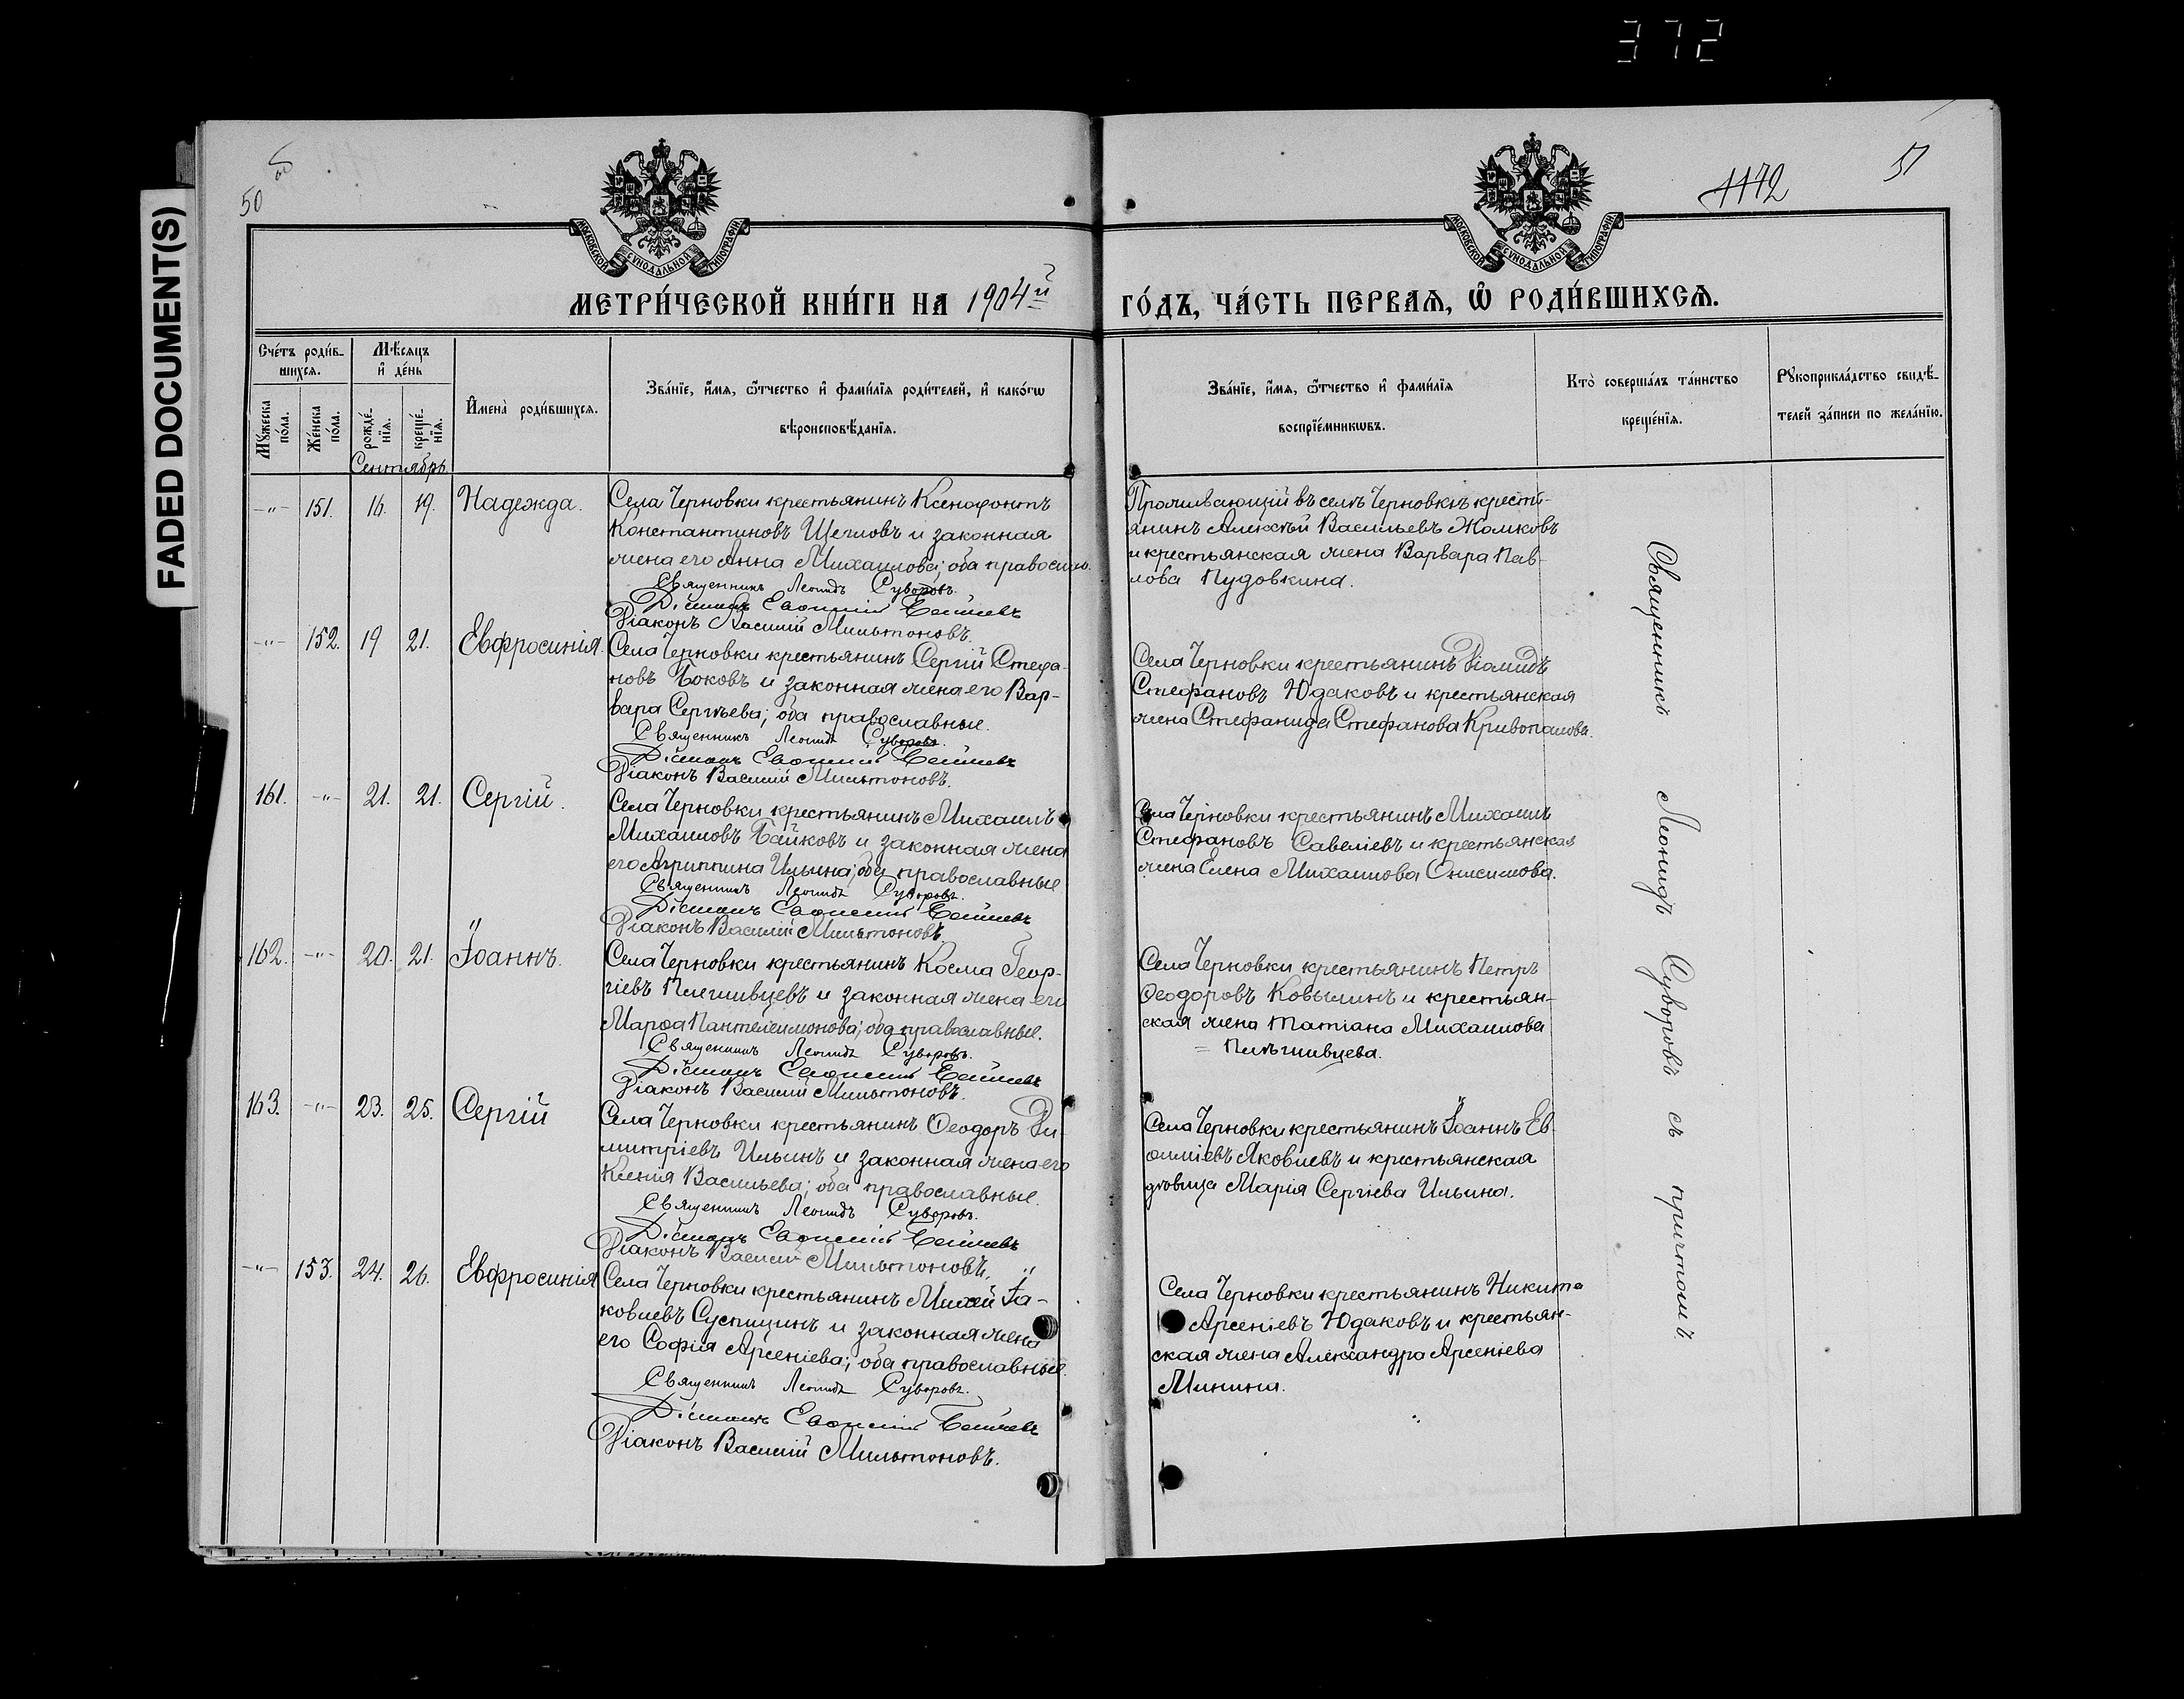 372
FADED DOCUMENT(S)
50
1172
51
МОСКОВСКОЙ СѴНОДАЛЬНОЙ ТИПОГРАФІИ
МОСКОВСКОЙ СѴНОДАЛЬНОЙ ТИПОГРАФІИ
МЕТРИ́ЧЕСКОЙ КНИ́ГИ НА 1904й ГО́ДЪ, ЧА́СТЬ ПЕРВАѦ, Ѡ҃ РОДИ́ВШИХСѦ.
Сче́тъ роди́в-
шихсѧ.
Мѣ́сѧцъ
и҆ де́нь
Мꙋ́жеска
по́ла.
Же́нска
по́ла.
рожде́-
нїѧ.
креще́-
нїѧ.
И҆мена̀ роди́вшихсѧ.
Зва́нїе, и҆́мѧ, ѻ҆́тчество и҆ фами́лїѧ роди́телей, и҆ како́гѡ
вѣроисповѣ́данїѧ.
Зва́нїе, и҆́мѧ, ѻ҆́тчество и҆ фами́лїѧ
воспрїе́мникѡвъ.
Кто̀ соверша́лъ та́инство
креще́нїѧ.
Рꙋкоприкла́дство свидѣ́-
телей за́писи по жела́нїю.
Сентябрь
-"- 151. 16. 19. Надежда.
Села Черновки крестьянинъ Ксенофонтъ
Константиновъ Щегловъ и законная
жена его Анна Михаилова; оба православн.
Священникъ Леонидъ Суворовъ.
Діаконъ Василій Мильтоновъ.
Проживающій въ селѣ Черновкѣ кресть-
янинъ Алексѣй Васильевъ Жомковъ
и крестьянская жена Варвара Пав-
лова Пудовкина.
-"- 152. 19 21. Евфросинія.
Села Черновки крестьянинъ Сергій Стефа-
новъ Боковъ и законная жена его Вар-
вара Сергѣева; оба православные.
Священникъ Леонидъ Суворовъ.
Діаконъ Василій Мильтоновъ.
Села Черновки крестьянинъ Діомидъ
Стефановъ Юдаковъ и крестьянская
жена Стефанида Стефанова Кривопалова.
161. -"- 21. 21. Сергій.
Села Черновки крестьянинъ Михаилъ
Михаиловъ Байковъ и законная жена
его Агриппина Ильина; оба православные
Священникъ Леонидъ Суворовъ.
Діаконъ Василій Мильтоновъ.
Села Черновки крестьянинъ Михаилъ
Стефановъ Савеліевъ и крестьянская
жена Елена Михаилова Онисимова.
162. -"- 20. 21. Іоаннъ.
Села Черновки крестьянинъ Косма Геор-
гіевъ и законная жена его
Марѳа Пантелеимонова; оба православные.
Священникъ Леонидъ Суворовъ.
Діаконъ Василій Мильтоновъ.
Села Черновки крестьянинъ Петръ
Ѳеодоровъ Ковылинъ и крестьян-
ская жена Татіана Михаилова
163. -"- 23. 25. Сергій
Села Черновки крестьянинъ Ѳеодоръ Ди-
митріевъ Ильинъ и законная жена его
Ксенія Васильева; оба православные.
Священникъ Леонидъ Суворовъ.
Діаконъ Василій Мильтоновъ.
Села Черновки крестьянинъ Іоаннъ Ев-
ѳиміевъ Яковлевъ и крестьянская
вдовица Марія Сергіева Ильина.
-"- 153. 24. 26. Евфросинія
Села Черновки крестьянинъ Михей Іа-
ковлевъ Суспицинъ и законная жена
его Софія Арсеніева; оба православные.
Священникъ Леонидъ Суворовъ.
Діаконъ Василій Мильтоновъ.
Села Черновки крестьянинъ Никита
Арсеніевъ Юдаковъ и крестьян-
ская жена Александра Арсеніева
Минина.
Священникъ Леонидъ Суворовъ съ причтомъ